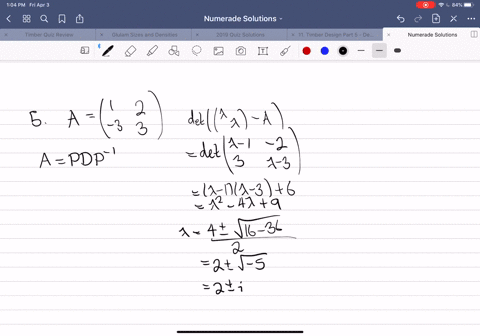 1:04 PM Fri Apr 3
Numerade Solutions
Timber Quiz Review
Glulam Sizes and Densities
2019 Quiz Solutions
11. Timber Design Part 5 - De...
Numerade Solutions
5. A = (1 2 -3 3) det((λ λ) - A)
A = PDP⁻¹ = det(λ-1 -2 3 λ-3)
= (λ-1)(λ-3) + 6
= λ² - 4λ + 9
λ = 4 ± √16-36 / 2
= 2 ± √-5
= 2 ± i